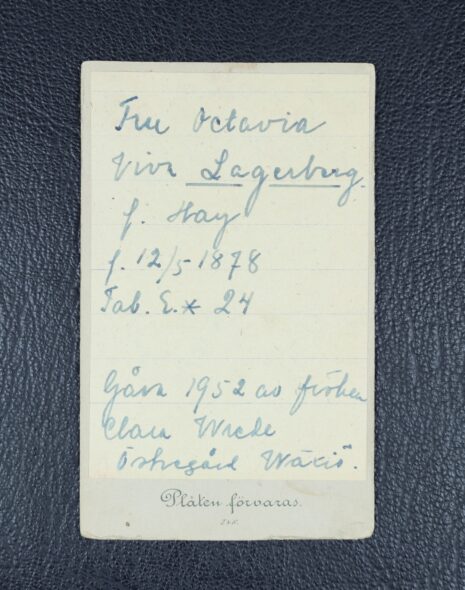 Fru Octavia
Viva Lagerberg.
f. Hay
f. 12/5 1878
Tab. E.* 24
Gåva 1952 av fröken
Clara Wrede
Östregård Wäxiö.
Plåten förvaras.